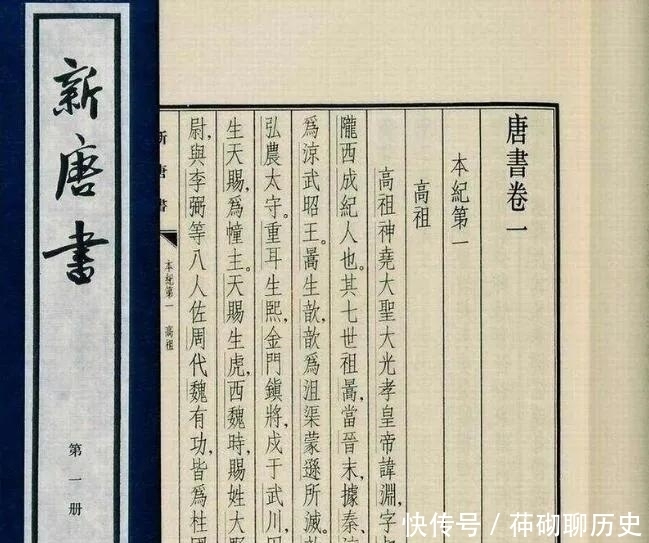 新唐書
第一册
唐書卷一
本紀第一
高祖
高祖神堯大聖大光孝皇帝諱淵,字
隴西成紀人也。其七世祖暠,當晉末,據秦、
爲涼武昭王。暠生歆,歆爲沮渠蒙遜所滅。
弘農太守。重耳生熙,金門鎮將,戍于武川,
生天賜,爲幢主。天賜生虎,西魏時,賜姓大
尉,與李弼等八人佐周代魏有功,皆爲柱
新唐書
本紀第一 高祖
快传号/茽砌聊历史